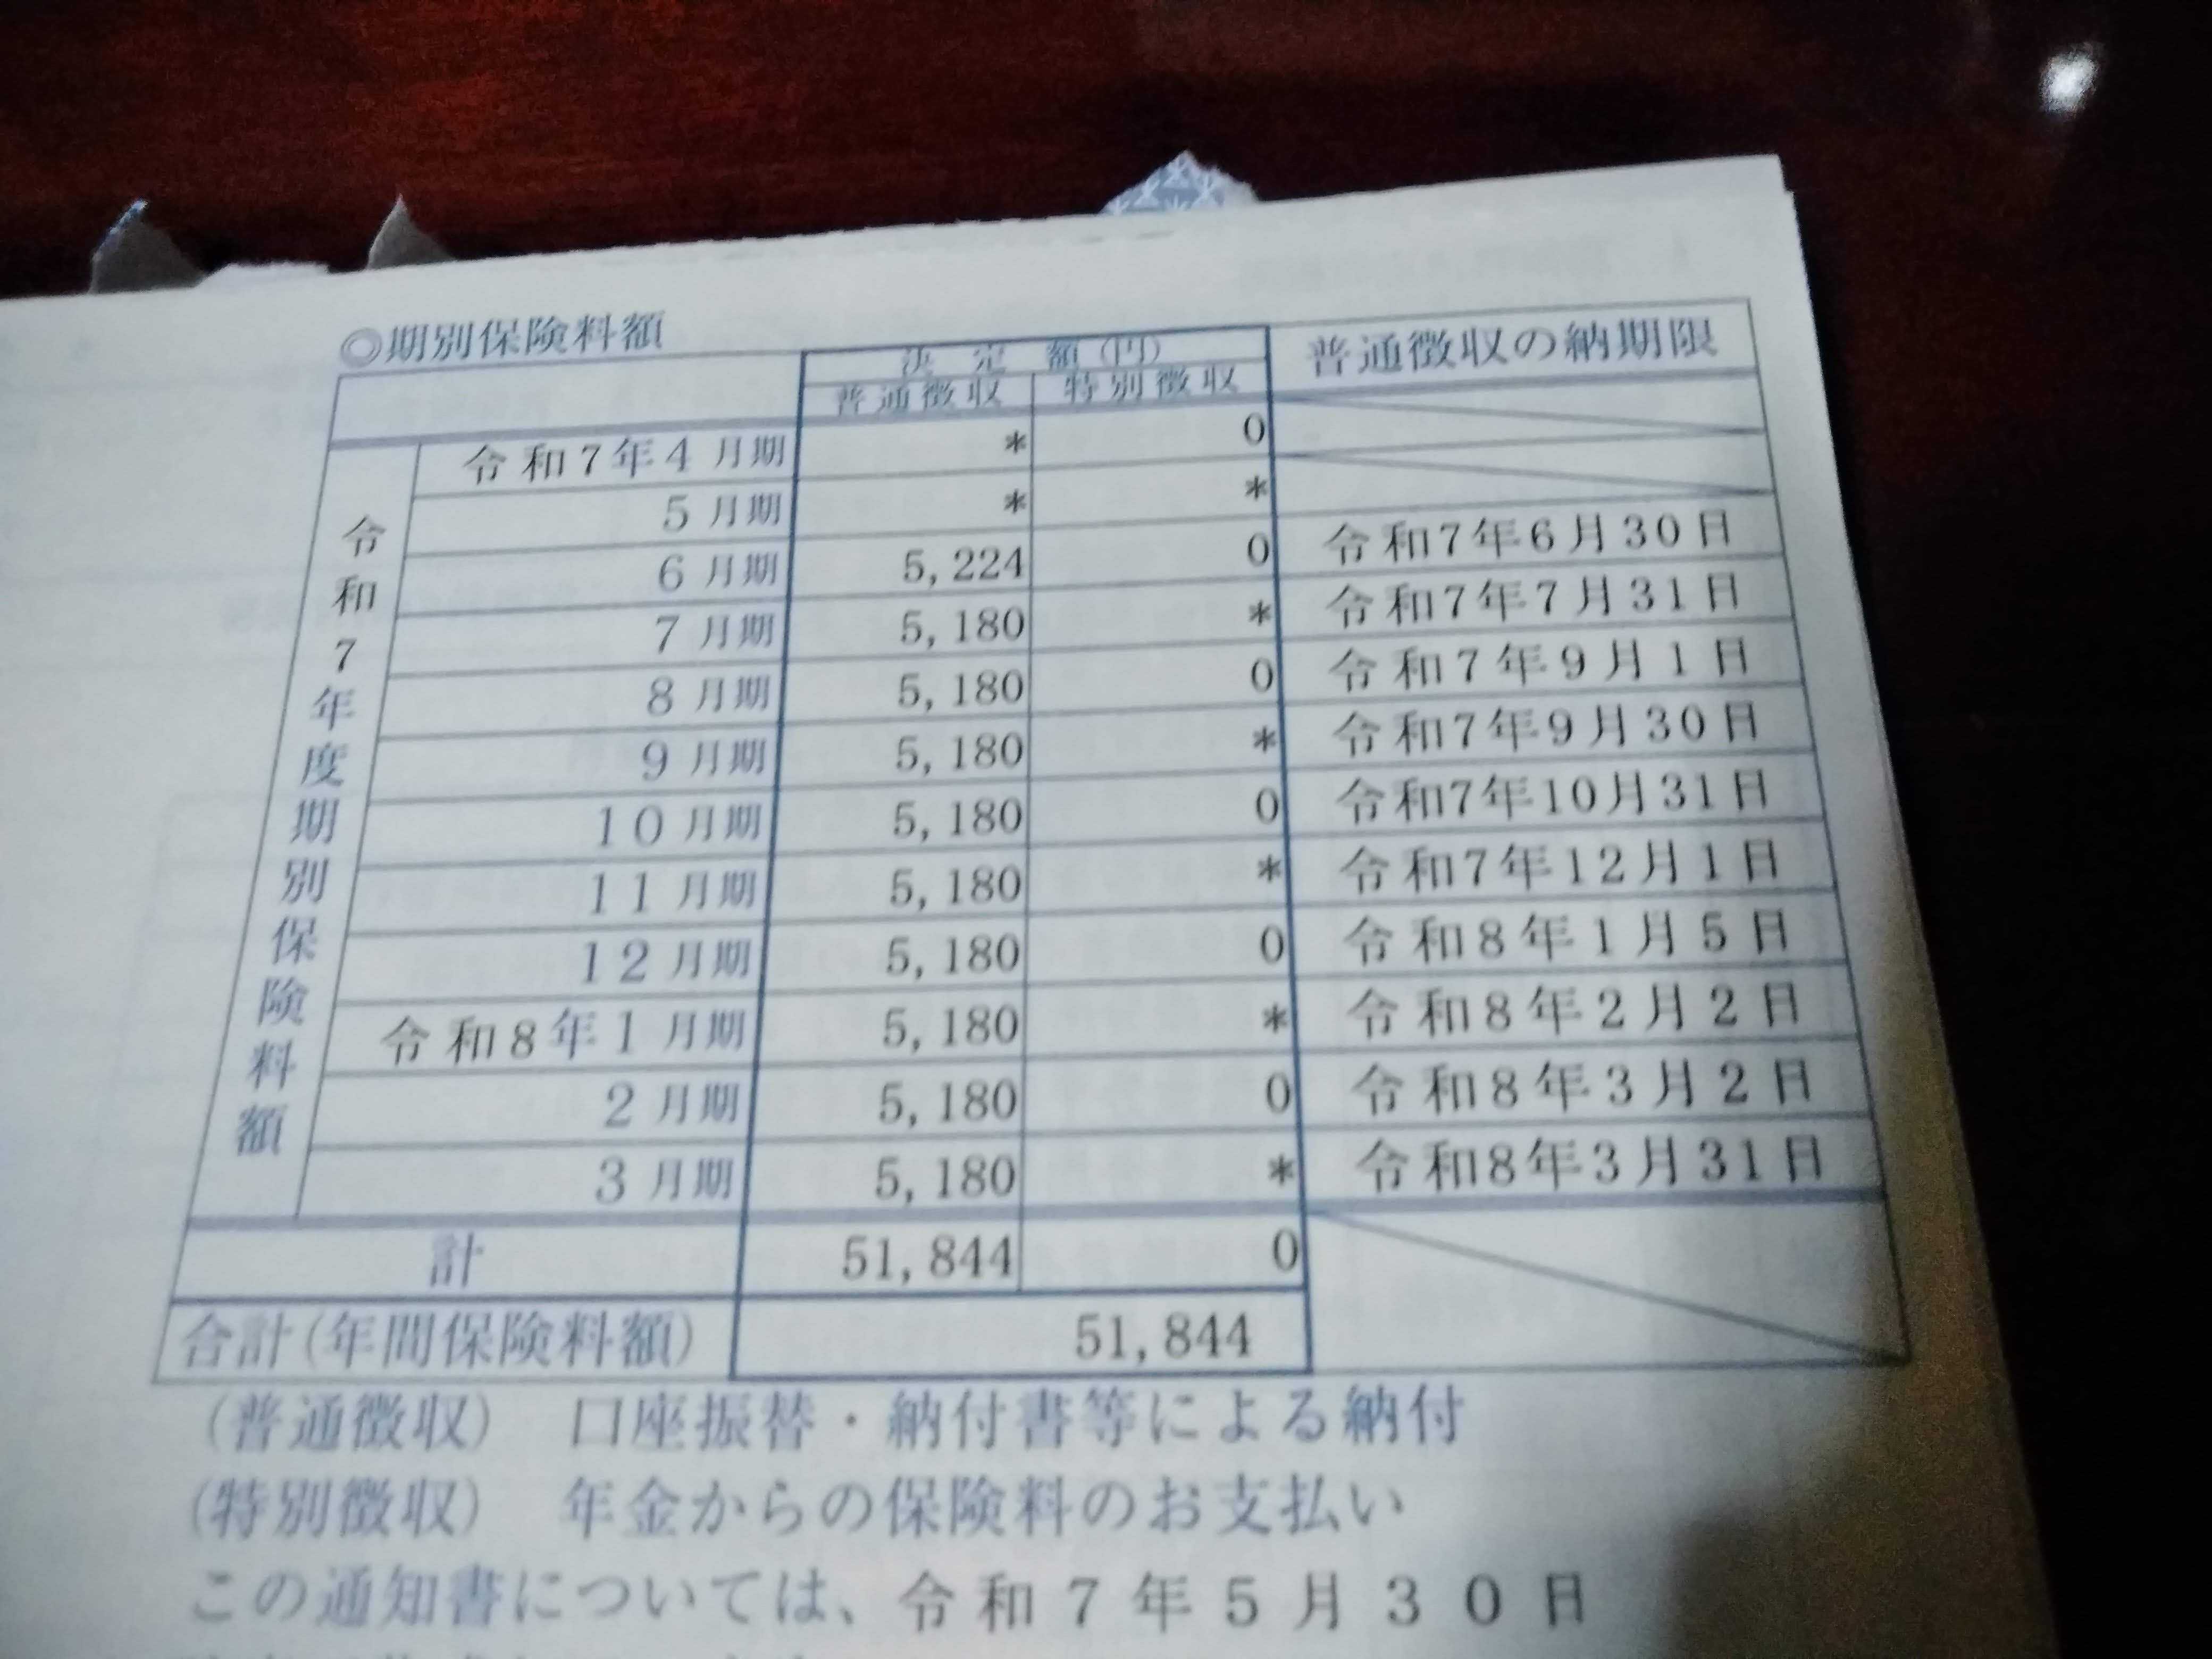 ◎期別保険料額
決定額(円) 普通徴収の納期限
普通徴収 特別徴収
令和7年度期別保険料額
令和7年4月期 * 0
5月期 * *
6月期 5,224 0 令和7年6月30日
7月期 5,180 * 令和7年7月31日
8月期 5,180 0 令和7年9月1日
9月期 5,180 * 令和7年9月30日
10月期 5,180 0 令和7年10月31日
11月期 5,180 * 令和7年12月1日
12月期 5,180 0 令和8年1月5日
令和8年1月期 5,180 * 令和8年2月2日
2月期 5,180 0 令和8年3月2日
3月期 5,180 * 令和8年3月31日
計 51,844 0
合計(年間保険料額) 51,844
(普通徴収) 口座振替・納付書等による納付
(特別徴収) 年金からの保険料のお支払い
この通知書については、令和7年5月30日